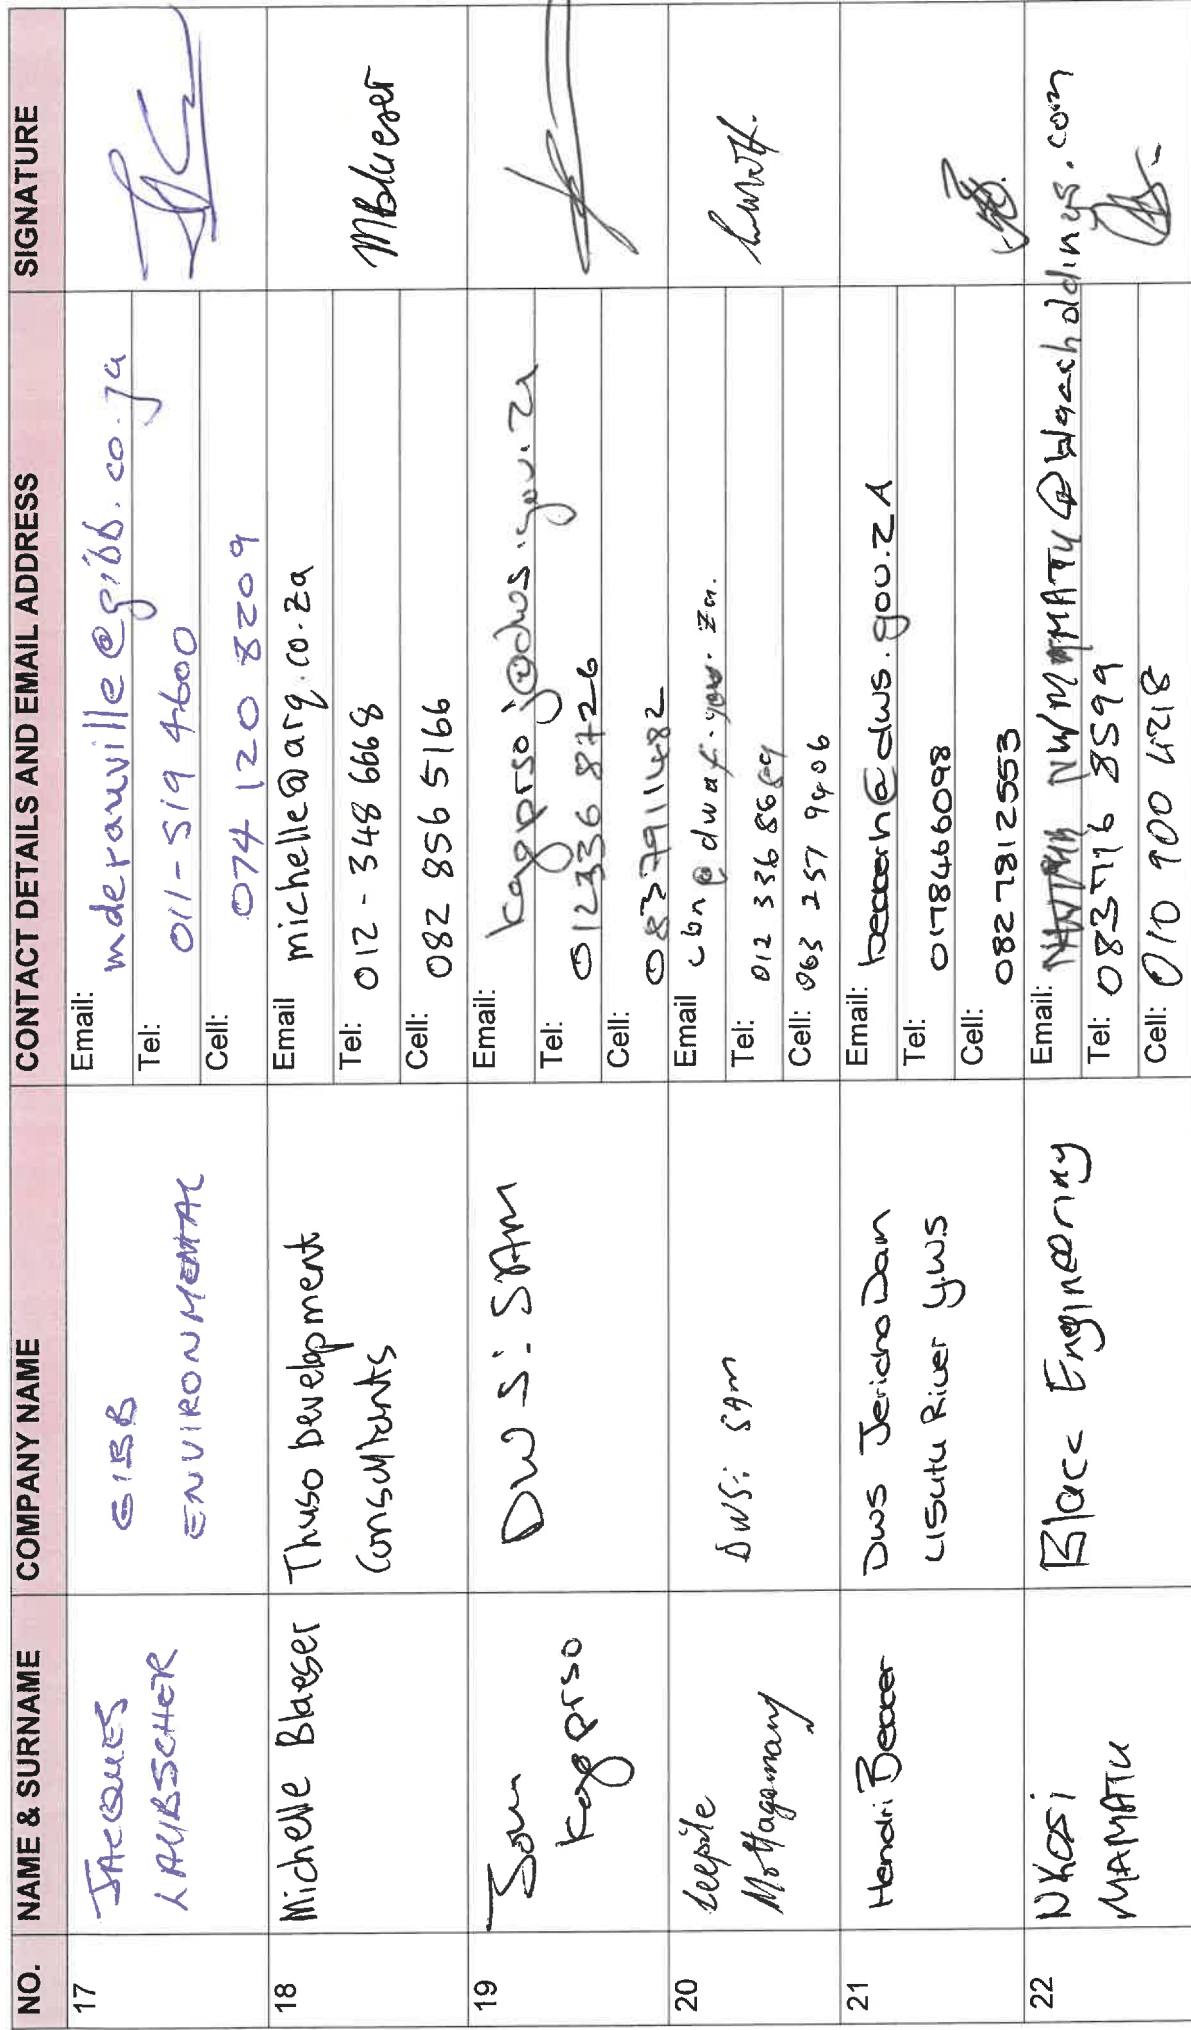 NO. NAME & SURNAME COMPANY NAME CONTACT DETAILS AND EMAIL ADDRESS SIGNATURE
17
JACQUES
LAUBSCHER
GIBB
ENVIRONMENTAL
Email: mderauville@gibb.co.za
Tel: 011-519 4600
Cell: 074 120 8209
18
Michelle Blaeser
Thuso Development
Consultants
Email michelle@arq.co.za
Tel: 012-348 6668
Cell: 082 856 5166
MBlaeser
19
DWS: SAM
Email:
Tel: 012336 8726
Cell: 0837911482
20
DWS: SAM
Email cbn@dwaf.gov.za.
Tel: 012 336
Cell: 063 257 9406
21
Hendri
DWS Jericho Dam
Usutu River GWS
Email: @dws.gov.ZA
Tel: 0178466098
Cell: 0827812553
22
NKOSI
MAMATU
Blacc Engineering
Email: @blaccholdings.com
Tel: 083 716 8599
Cell: 010 900 4218